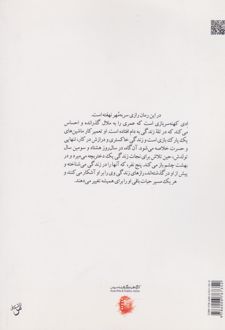 در این رمان رازی سربه‌مُهر نهفته است.
ادی کهنه‌سربازی است که عمری را به ملال گذرانده و احساس
می کند که در تلهٔ زندگی به دام افتاده است. او تعمیرکار ماشین‌های
یک پارک بازی است و زندگی خاکستری و درازش در کار، تنهایی
و حسرت خلاصه می‌شود. آن‌گاه در سال‌روز هشتاد و سومین سال
تولدش، حین تلاش برای نجات زندگی یک دختربچه می‌میرد و در
بهشت چشم باز می‌کند. پنج نفر، که آنها را در زندگی می‌شناخته و
پیش از او در گذشته‌اند، رازهای زندگی وی را بر او آشکار می‌کنند و
هر یک مسیر حیات باقی او را برای همیشه تغییر می‌دهند.